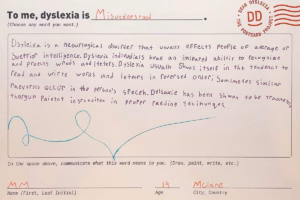 To me, dyslexia is Misunderstood.
(Choose any word you want.)
DEAR DYSLEXIA
DD
THE POSTCARD PROJECT
Dyslexia is a disorder that effects people of average or
superior intelligence. Dyslexia individuals have an impaired ability to recognize
and words and letters. Dyslexia usually shows itself in the tendency to
read and write words and letters in reversed order, Sometimes similar
reversals occur in the person's speech. Dyslexia has been shown to be
through patient instruction in proper reading techniques.
In the space above, communicate what this word means to you. (Draw, paint, write, etc.)
MM 19
Name (First, Last Initial) Age City, Country